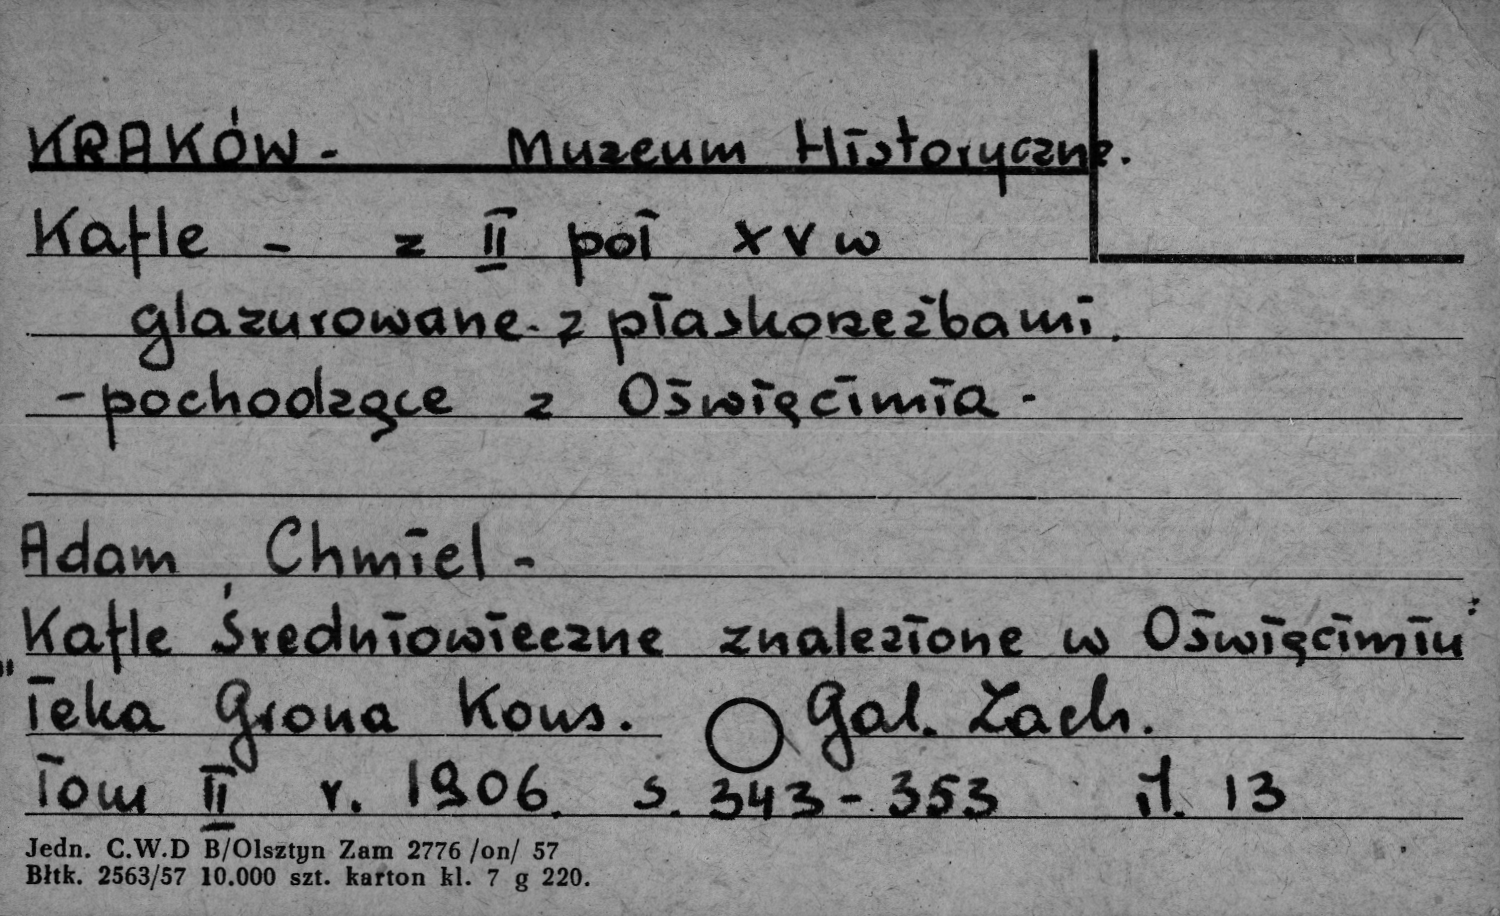 KRAKÓW - Muzeum Historyczne.
Kafle - z II poł XV w
glazurowane - z płaskorzeźbami.
- pochodzące z Oświęcimia -
Adam Chmiel -
Kafle średniowieczne znalezione w Oświęcimiu
"Teka Grona Kons. Gal. Zach.
Tom II r. 1906. s. 343 - 353 il. 13
Jedn. C.W.D B/Olsztyn Zam 2776 /on/ 57
Błtk. 2563/57 10.000 szt. karton kl. 7 g 220.